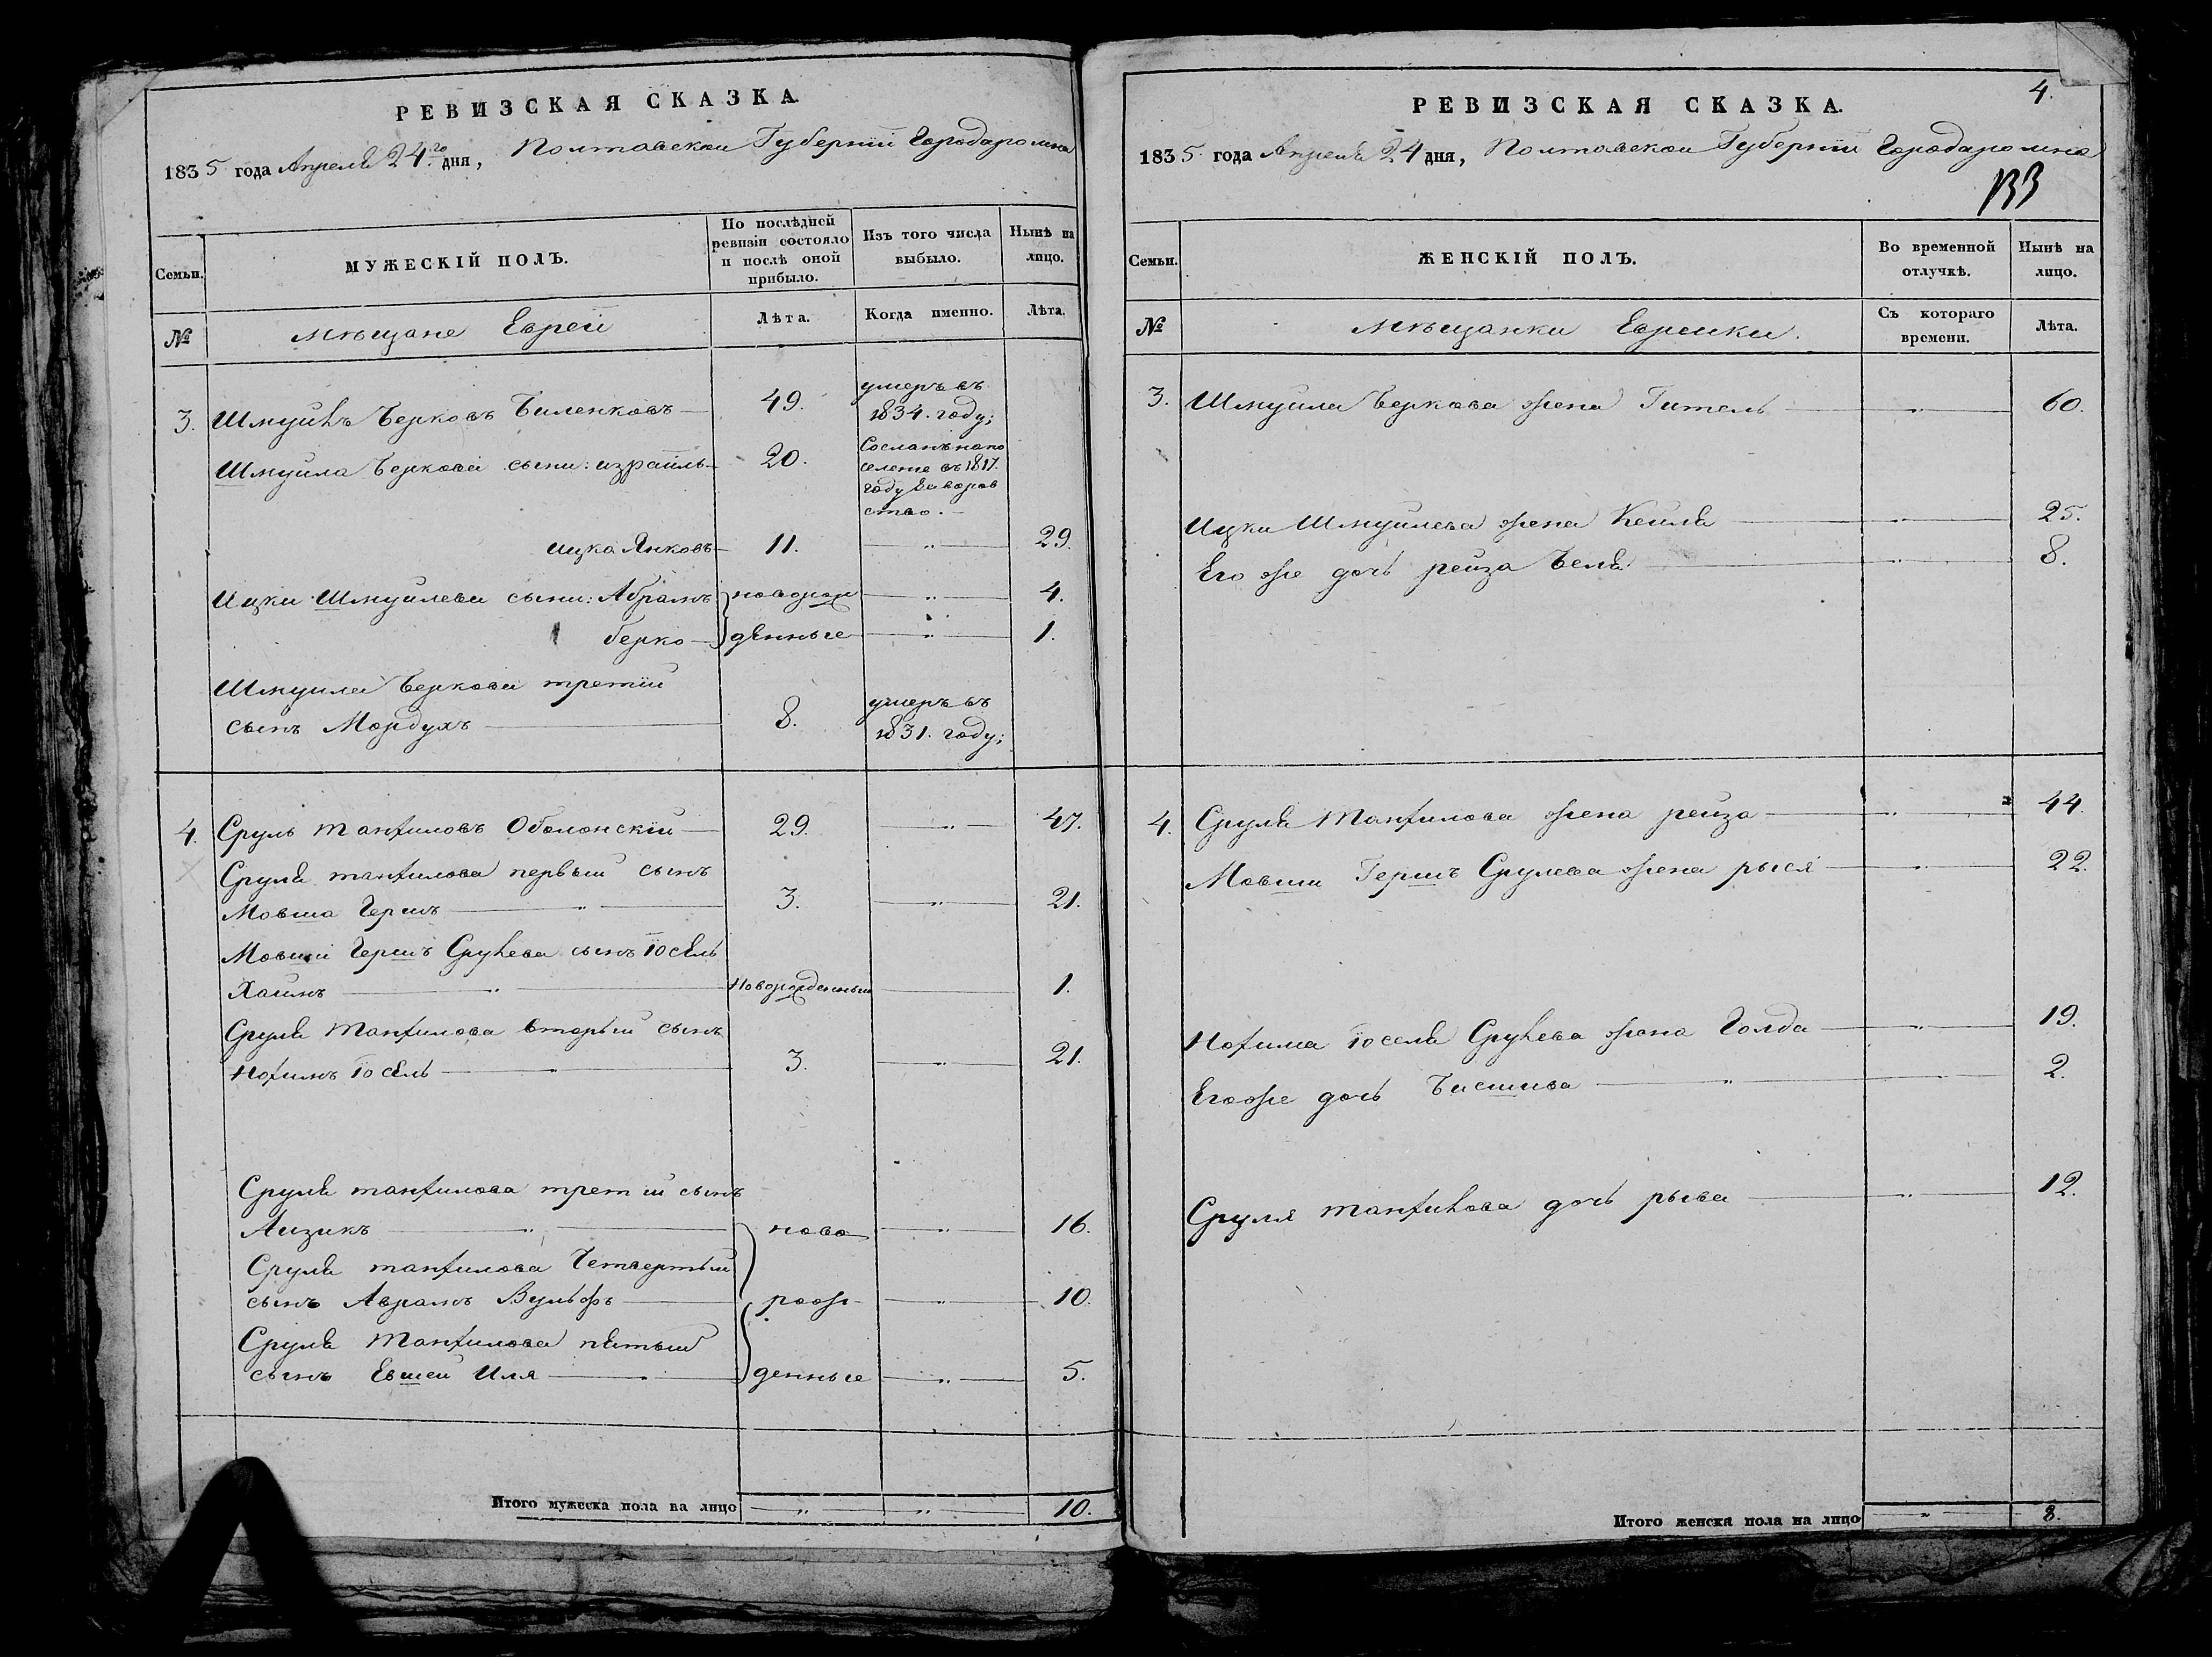 РЕВИЗСКАЯ СКАЗКА
1835 года Апреля 24.го дня, Полтавской Губернїи Города Ромна
Семьи. МУЖЕСКІЙ ПОЛЪ. По послѣдней ревизіи состояло и послѣ оной прибыло. Изъ того числа выбыло. Нынѣ на лицо.
№ Мѣщане Евреи Лѣта. Когда именно. Лѣта.
3. Шмуйлъ Берковъ Биленковъ 49. умеръ въ 1834. году;
Шмуйла Беркова сыни: израйль 20. Сосланъ на по
селение въ 1817.
году за воров
ство.
ицка Янковъ 11. 29.
Ицки Шмуйлева сыни: Абрамъ новорож 4.
берко денные 1.
Шмуйла Беркова третїй
сынъ Мордухъ 8. умеръ въ 1831. году;
4. Сруль Танхиловъ Оболонскїй 29. 47.
Сруля танхилова первый сынъ
Мовша Гершъ 3. 21.
Мовши Гершъ Срулева сынъ Іосель
Хаимъ Новорожденный 1.
Сруля Танхилова вторый сынъ
Нохимъ Іосель 3. 21.
Сруля танхилова третїй сынъ
Аизикъ ново 16.
Сруля танхилова Четвертый
сынъ Аврамъ Вульфъ рож 10.
Сруля Танхилова пятый
сынъ Евшей Иля денные 5.
Итого мужеска пола на лицо 10.
4.
РЕВИЗСКАЯ СКАЗКА.
1835 года Апреля 24 дня, Полтавской Губернїи Города Ромна
133
Семьи. ЖЕНСКІЙ ПОЛЪ. Во временной отлучкѣ. Нынѣ на лицо.
№ Мѣщанки Еврейки. Съ котораго времени. Лѣта.
3. Шмуйла Беркова жена Гитель 60.
Ицки Шмуйлева жена Кейля 25.
Его же дочь рейза Беля 8.
4. Сруля Танхилова жена рейза 44.
Мовши Гершъ Срулева жена рыся 22.
Нохима Іоселя Срулева жена Голда 19.
Его же дочь Басшива 2.
Сруля танхилова дочь рыва 12.
Итого женска пола на лицо 8.